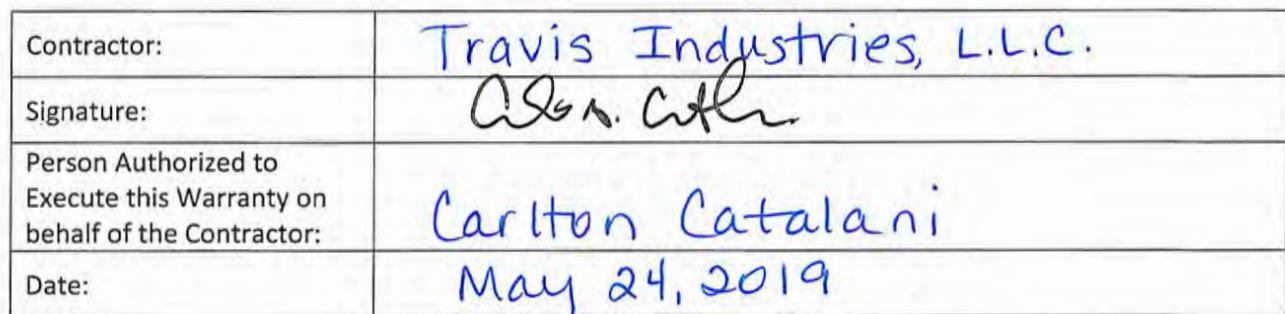 Contractor: Travis Industries, L.L.C.
Signature:
Person Authorized to
Execute this Warranty on
behalf of the Contractor: Carlton Catalani
Date: May 24, 2019